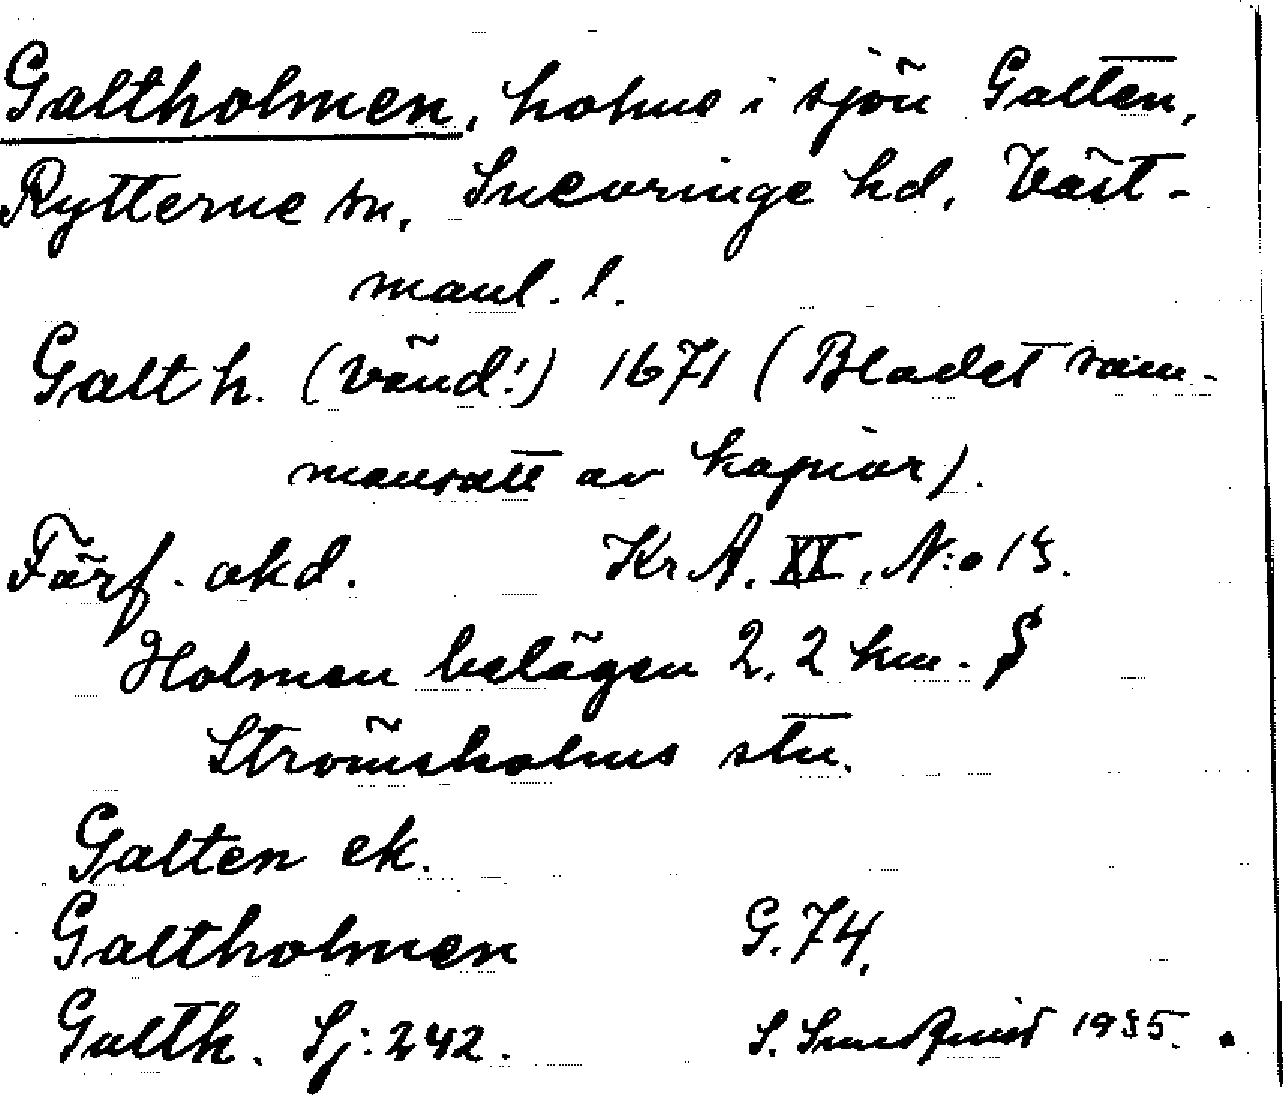 Galtholmen, holme i sjön Galten,
Rytterne sn, Snevringe hd, Väst-
manl. l.
Galt h. (Vänd!) 1671 (Bladet sam-
mansatt av kopior).
Förf. okd. Kr A. XV, N:o 13.
Holmen belägen 2,2 km. S
Strömsholms stn.
Galten ek.
Galtholmen G. 74,
Galth. Sj: 242.
S. Sundqvist 1935.